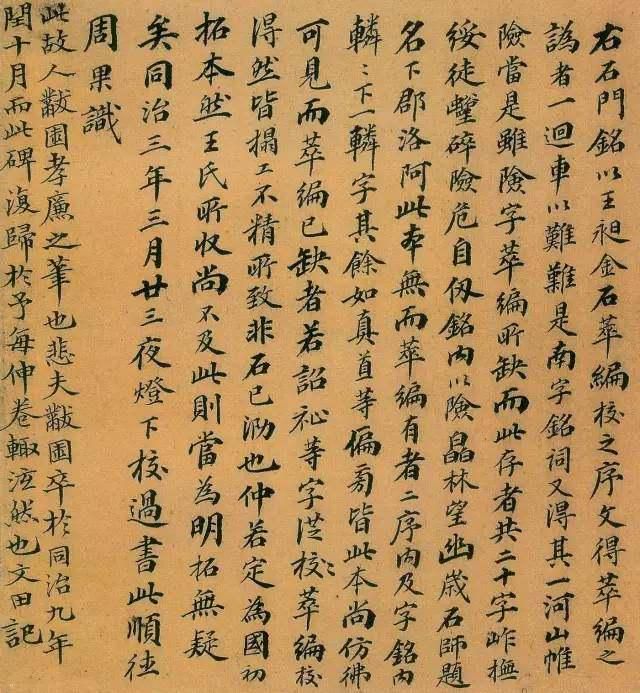 右石門銘以王昶金石萃編校之序文得萃編之
譌者一迴車以難難是南字銘詞又得其一河山帷
險當是雖險字萃編所缺而此存者共二十字岞橅
綏徒蠥碎險危自伋銘內以險晶林望幽歲石師題
名下郡洛阿此本無而萃編有者二序內及字銘內
轔〻下一轔字其餘如真首等偏旁皆此本尚仿彿
可見而萃編已缺者若詔祉等字洪校〻萃編校
得然皆搨工不精所致非石已泐也仲若定為國初
拓本然王氏所收尚不及此則當為明拓無疑
矣同治三年三月廿三夜燈下校過書此順德
周果識
此故人黻園孝廉之筆也悲夫黻園卒於同治九年
閏十月而此碑復歸於予每伸卷輙泫然也文田記